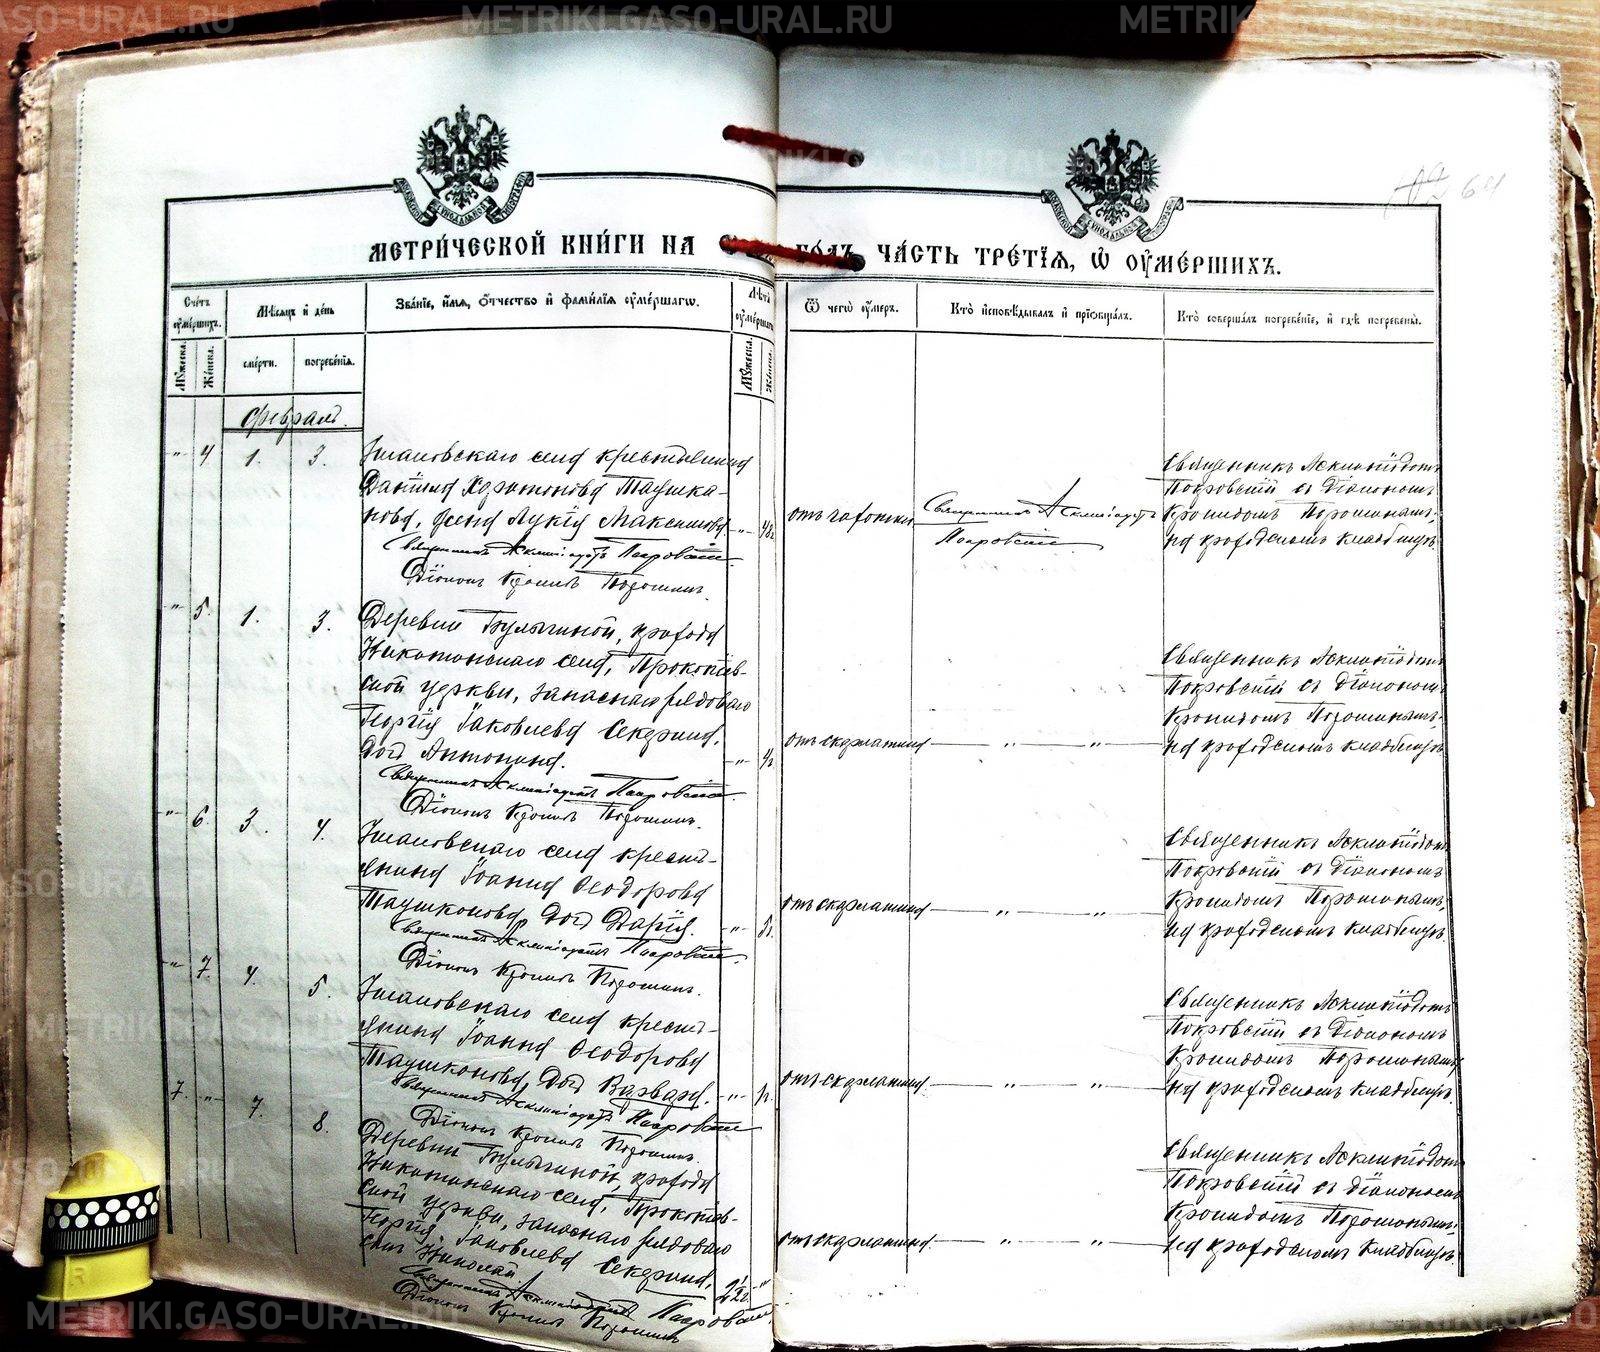 METRIKI.GASO-URAL.RU
64
МЕТРИ́ЧЕСКОЙ КНИ́ГИ НА ГО́ДЪ, ЧА́СТЬ ТРЕ́ТІѦ, Ѽ ОУ҆МЕ́РШИХЪ.
Сче́тъ оу҆ме́ршихъ.
Мꙋ́жеска.
Же́нска.
Мѣ́сѧцъ и҆ де́нь
сме́рти.
погребе́нїѧ.
Зва́нїе, и҆́мѧ, ѻ҆́тчество и҆ фами́лїѧ оу҆ме́ршагѡ.
Лѣ́та оу҆ме́ршагѡ
Мꙋ́жеска.
Же́нска.
Ѿ чегѡ̀ оу҆́меръ.
Кто̀ и҆сповѣ́дывалъ и҆ приѻбща́лъ.
Кто̀ соверша́лъ погребе́нїе, и҆ гдѣ̀ погребены̀.
Февраль.
" 4 1. 3.
села крестьянина
Даніила Харитонова Таушка-
нова, жена Лукія Максимова.
Священникъ Асклипіодотъ Покровскій.
Діаконъ Кронидъ Порошинъ.
отъ чахотки
Священникъ Асклипіодотъ
Покровскій.
Священникъ Асклипіодотъ
Покровскій съ діакономъ
Кронидомъ Порошинымъ,
на приходскомъ кладбищѣ.
" 5. 1. 3.
Деревни Булыгиной, прихода
села, Прокопіев-
ской церкви, запаснаго рядоваго
Георгія Іаковлева Секерина,
дочь Антонина.
Священникъ Асклипіодотъ Покровскій.
Діаконъ Кронидъ Порошинъ.
" 4
отъ скарлатины — " — " —
Священникъ Асклипіодотъ
Покровскій съ діакономъ
Кронидомъ Порошинымъ,
на приходскомъ кладбищѣ.
" 6. 3. 4.
села кресть-
янина Іоанна Ѳеодорова
Таушканова, дочь Дарія.
Священникъ Асклипіодотъ Покровскій.
Діаконъ Кронидъ Порошинъ.
отъ скарлатины — " — " —
Священникъ Асклипіодотъ
Покровскій съ діакономъ
Кронидомъ Порошинымъ,
на приходскомъ кладбищѣ.
" 7. 4. 5.
села кресть-
янина Іоанна Ѳеодорова
Таушканова, дочь Варвара.
Священникъ Асклипіодотъ Покровскій
Діаконъ Кронидъ Порошинъ.
отъ скарлатины — " — " —
Священникъ Асклипіодотъ
Покровскій съ діакономъ
Кронидомъ Порошинымъ,
на приходскомъ кладбищѣ.
7. " 7. 8.
Деревни Булыгиной, прихода
села, Прокопіев-
ской церкви, запаснаго рядоваго
Георгія Іаковлева Секерина,
сынъ Николай
Священникъ Асклипіодотъ Покровскій
Діаконъ Кронидъ Порошинъ
2½ г. "
отъ скарлатины — " — " —
Священникъ Асклипіодотъ
Покровскій съ діакономъ
Кронидомъ Порошинымъ,
на приходскомъ кладбищѣ.